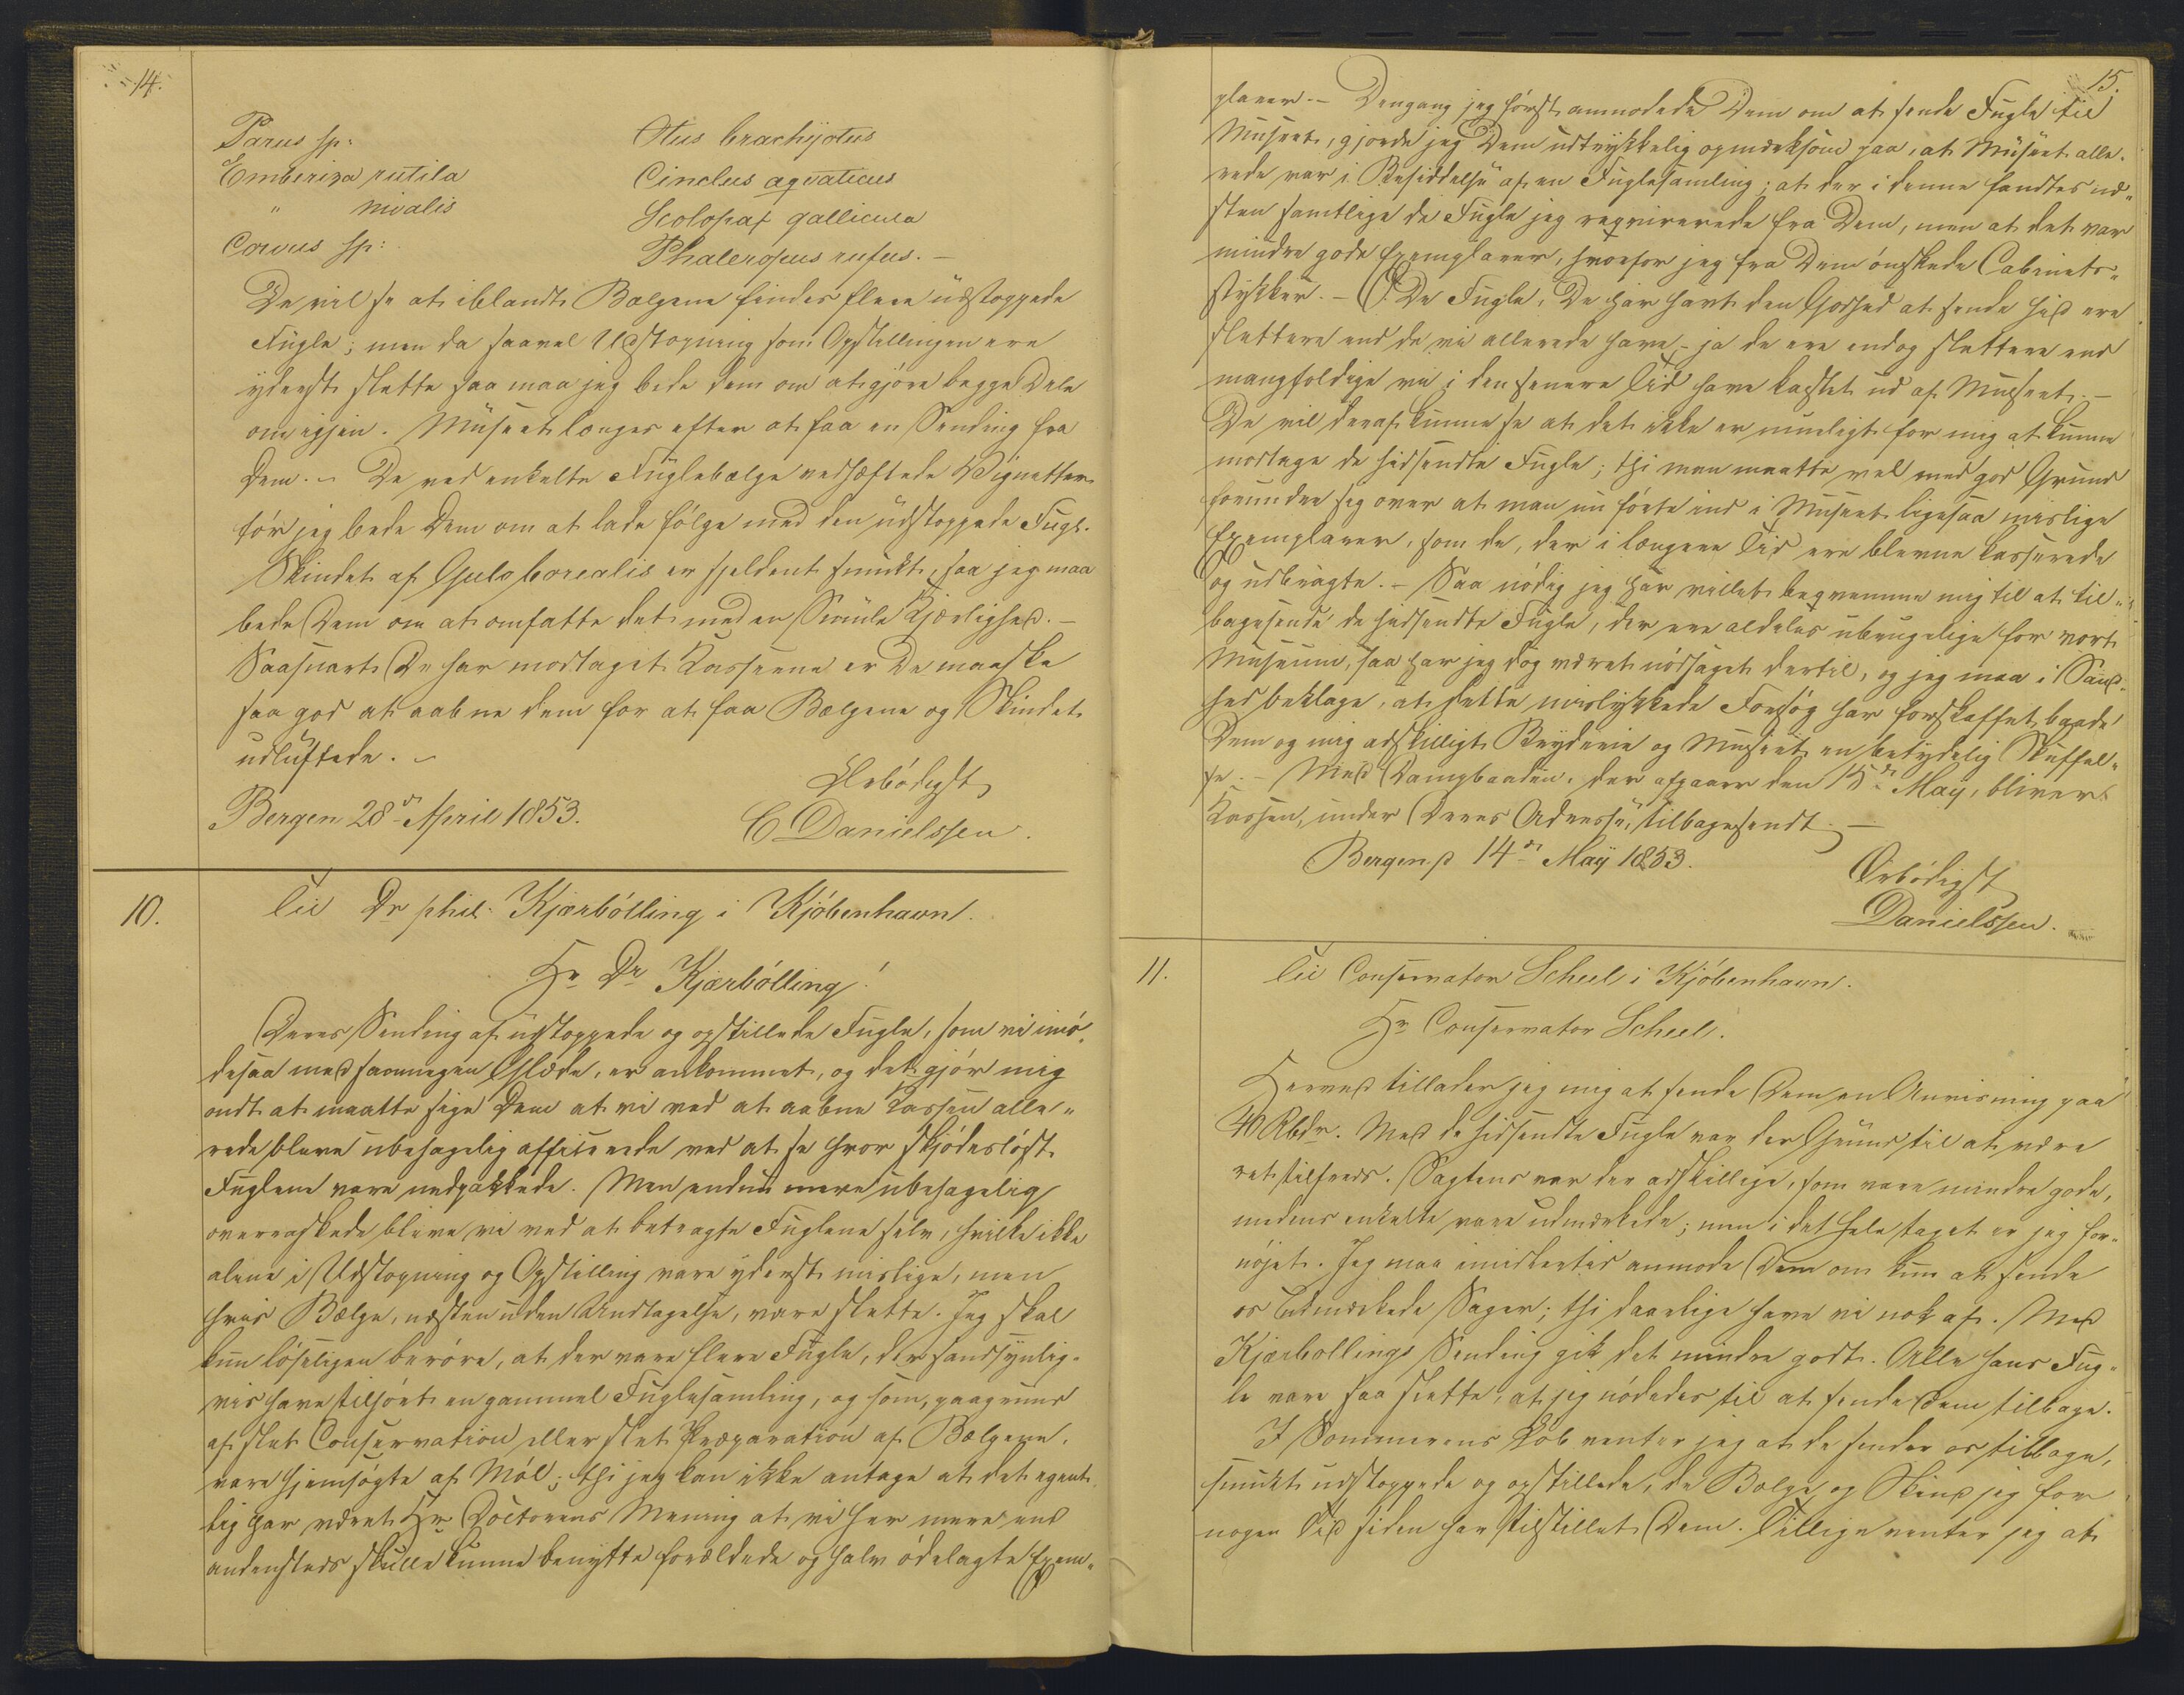 14.
Parus sp: Otus brachÿotus
Emberiza rutila Cinclus aqvaticus
" nivalis Scolopax gallicula
Corvus sp: Phaleropus rufus. —
De vil se at iblandt Bælgene findes flere udstoppede
Fugle; men da saavel Udstopning som Opstillingen ere
yderst slette saa maa jeg bede dem om at gjöre begge Dele
om igjen. Museet længes efter at faa en Sending fra
Dem. – De ved enkelte Fuglebælge vedhæftede Vignetter
tör jeg bede Dem om at lade fölge med den udstoppede Fugl.
Skindet af Gulo borealis er sjeldent smukt, saa jeg maa
bede Dem om at omfatte det med en Smule Kjærlighed. –
Saasnart De har modtaget Kasserne er De maaske
saa god at aabne dem for at faa Bælgene og Skindet
udluftede. –
Ærbödigst
Bergen 28de April 1853. C Danielssen.
10. Til Dr phil. Kjærbölling i Kjöbenhavn.
Hr Dr Kjærbölling!
Deres Sending af udstoppede og opstillede Fugle, som vi imö„
desaa med saamegen Glæde, er ankommet, og det gjör mig
ondt at maatte sige Dem at vi ved at aabne Kassen alle„
rede bleve ubehagelig afficerede ved at se hvor skjödeslöst
Fuglene vare nedpakkede. Men endnu mere ubehagelig
overraskede bleve vi ved at betragte Fuglene selv, hvilke ikke
alene i Udstopning og Opstilling vare yderst mislige, men
hvis Bælge, næsten uden Undtagelse, vare slette. Jeg skal
kun löseligen beröre, at der vare flere Fugle, der sandsynlig„
vis have tilhört en gammel Fuglesamling, og som, paagrund
af slet Conservation eller slet Præparation af Bælgene,
vare hjemsögte af Möl; thi jeg kan ikke antage at det egent„
lig har været Hr Doctorens Mening at vi her mere end
andensteds skulle kunne benytte forældede og halv ödelagte Exem„
15.
plarer. – Dengang jeg först anmodede Dem om at sende Fugle til
Museet, gjorde jeg Dem udtrykkelig opmærksom paa, at Museet alle„
rede var i Besiddelse af en Fuglesamling; at der i denne fandtes næ„
sten samtlige de Fugle jeg reqvirerede fra Dem, men at det var
mindre gode Exemplarer, hvorfor jeg fra Dem önskede Cabinets„
stykker. – De Fugle, De har havt den Godhed at sende hid ere
slettere end de vi allerede have, – ja de ere endog slettere end
mangfoldige vi i den senere Tid have kastet ud af Museet. –
De vil deraf kunne se at det ikke er mueligt for mig at kunne
modtage de hidsendte Fugle; thi man maatte vel med god Grund
forundre sig over at man nu förte ind i Museet ligesaa mislige
Exemplarer, som de, der i længere Tid ere blevne kasserede
og udbragte. – Saa nödig jeg har villet beqvemme mig til at til„
bagesende de hidsendte Fugle, der ere aldeles ubrugelige for vort
Museum, saa har jeg dog været nödsaget dertil, og jeg maa i Sand„
hed beklage, at dette mislykkede Forsög har forskaffet baade
Dem og mig adskilligt Bryderie og Museet en betydelig Skuffel„
se. – Med Dampbaaden, der afgaaer den 15de May, bliver
Kassen, under Deres Adresse, tilbagesendt. –
Bergen d 14de Maÿ 1853.
Ærbödigst
Danielssen.
11. Til Conservator Scheel i Kjöbenhavn.
Hr Conservator Scheel.
Herved tillader jeg mig at sende Dem en Anvisning paa
40 Rbdr. Med de hidsendte Fugle var der Grund til at være
ret tilfreds. Sagtens var der adskillige, som vare mindre gode,
medens enkelte vare udmærkede; men i det hele taget er jeg for„
nöjet. Jeg maa imidlertid anmode Dem om kun at sende
os udmærkede Sager; thi daarlige have vi nok af. Med
Kjærbollings Sending gik det mindre godt. Alle hans Fug„
le vare saa slette, at jeg nödedes til at sende dem tilbage.
I Sommerens Löb venter jeg at de sender os tilbage,
smukt udstoppede og opstillede, de Bælge og Skind jeg for
nogen Tid siden har tilstillet Dem. Tillige venter jeg at